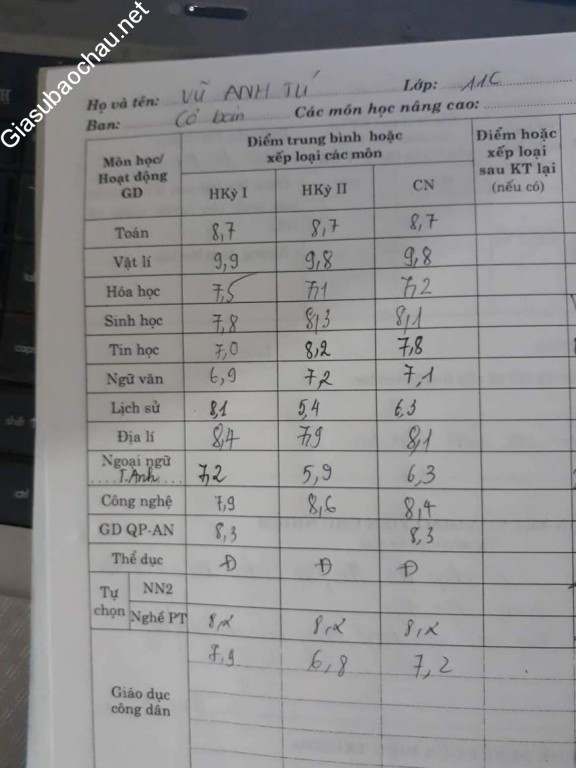 Giasubaochau.net
Họ và tên: VŨ ANH TÚ Lớp: 11C
Ban: Cơ bản Các môn học nâng cao:
Môn học/ Hoạt động GD
Điểm trung bình hoặc xếp loại các môn
Điểm hoặc xếp loại sau KT lại (nếu có)
HKỳ I HKỳ II CN
Toán 8,7 8,7 8,7
Vật lí 9,9 9,8 9,8
Hóa học 7,5 7,1 7,2
Sinh học 7,8 8,3 8,1
Tin học 7,0 8,2 7,8
Ngữ văn 6,9 7,2 7,1
Lịch sử 8,1 5,4 6,3
Địa lí 8,4 7,9 8,1
Ngoại ngữ
T.Anh 7,2 5,9 6,3
Công nghệ 7,9 8,6 8,4
GD QP-AN 8,3 8,3
Thể dục Đ Đ Đ
Tự chọn
NN2
Nghề PT
Giáo dục công dân 7,9 6,8 7,2